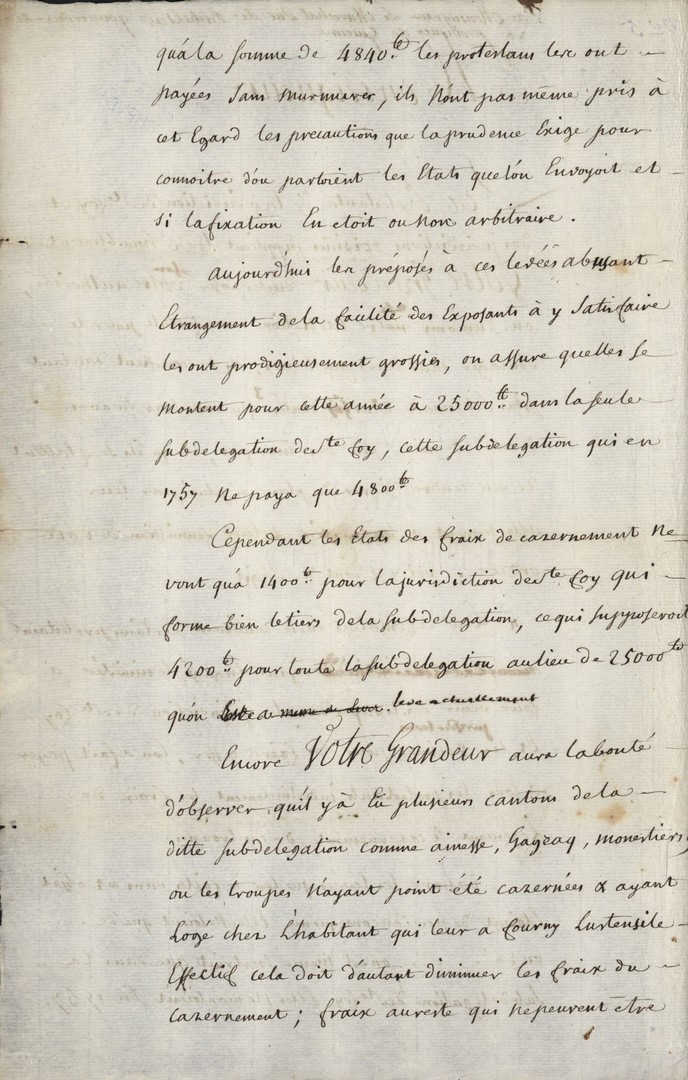 qu'a la somme de 4840.tt les protestans les ont
payées sans murmurer, ils n'ont pas même pris à
cet Egard les precautions que la prudence Exige pour
connoitre d'ou partoient les Etats que l'on Envoyoit et
si la fixation En etoit ou non arbitraire.
aujourd'hui les préposés à ces levéës abusant
Etrangement de la facilité des Exposants à y Satisfaire
les ont prodigieusement grossies, on assure quelles se
montent pour cette année à 25000.tt dans la seule
subdelegation de Ste foy, cette subdelegation qui en
1757 ne paya que 4800tt
Cependant les Etats des fraix de cazernement ne
vont qu'a 1400tt pour la jurisdiction de Ste foy qui
forme bien le tiers de la subdelegation, ce qui supposeroit
4200tt pour toute la subdelegation au lieu de 25000tt
qu'on leve actuellement
Encore Votre Grandeur aura la bonté
d'observer qu'il y à Eu plusieurs cantons de la
ditte subdelegation comme ainesse, Gageaq, monestiers
ou les troupes n'ayant point été cazernées & ayant
Logé chez L'habitant qui leur a fourny Lustensile
Effectif cela doit d'autant diminuer les fraix du
cazernement; fraix au reste qui ne peuvent être